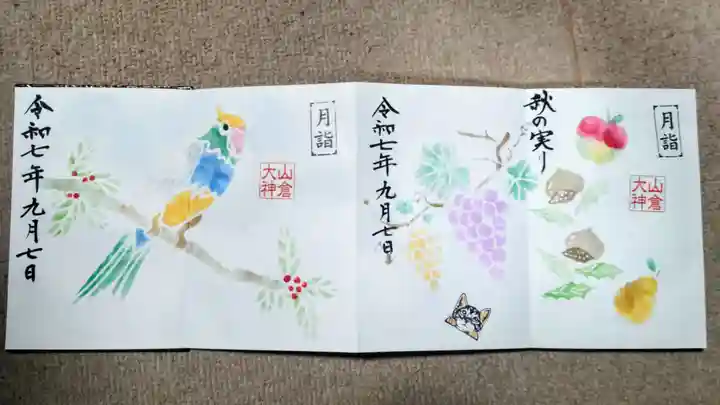 月詣
山倉
大神
令和七年九月七日
月詣
山倉
大神
秋の実り
令和七年九月七日